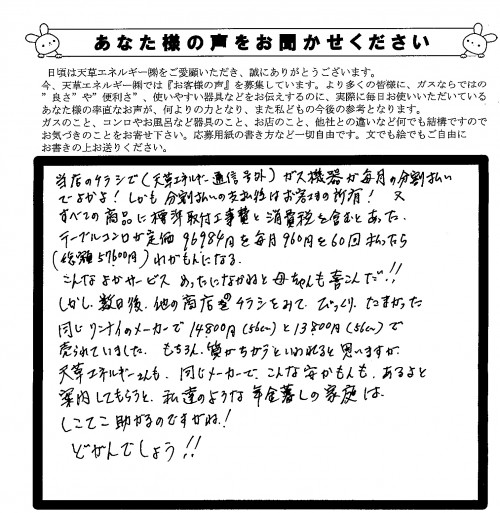 あなた様の声をお聞かせください
日頃は天草エネルギー㈱をご愛顧いただき、誠にありがとうございます。
今、天草エネルギー㈱では『お客様の声』を募集しています。より多くの皆様に、ガスならではの
"良さ"や"便利さ"、使いやすい器具などをお伝えするのに、実際に毎日お使いいただいている
あなた様の率直なお声が、何よりの力となり、また私どもの今後の参考となります。
ガスのこと、コンロやお風呂など器具のこと、お店のこと、他社との違いなど何でも結構ですので
お気づきのことをお寄せ下さい。応募用紙の書き方など一切自由です。文でも絵でもご自由に
お書きの上お送りください。
当店のチラシで(天草エネルギー通信号外)ガス機器が毎月の分割払い
でよかよ!しかも分割払いの支払後はお客さまの所有!又
すべての商品に標準取付工事費と消費税を含むとあった.
テーブルコンロが定価96984円を毎月960円を60回払ったら
(総額57600円)わがもんになる.
こんなよかサービスめったになかねと母ちゃんも喜こんだ!!
しかし、数日後、他の商店のチラシをみて、びっくり、たまがった
同じリンナイのメーカーで14.800円(56cm)と13.800円(56cm)で
売られていました.もちろん、質がちがうといわれると思いますが、
天草エネルギーさんも、同じメーカーで、こんな安かもんも、あるよと
案内してもらうと、私達のような年金暮しの家庭は、
しこてこ助かるのですがね!
どがんでしょう!!